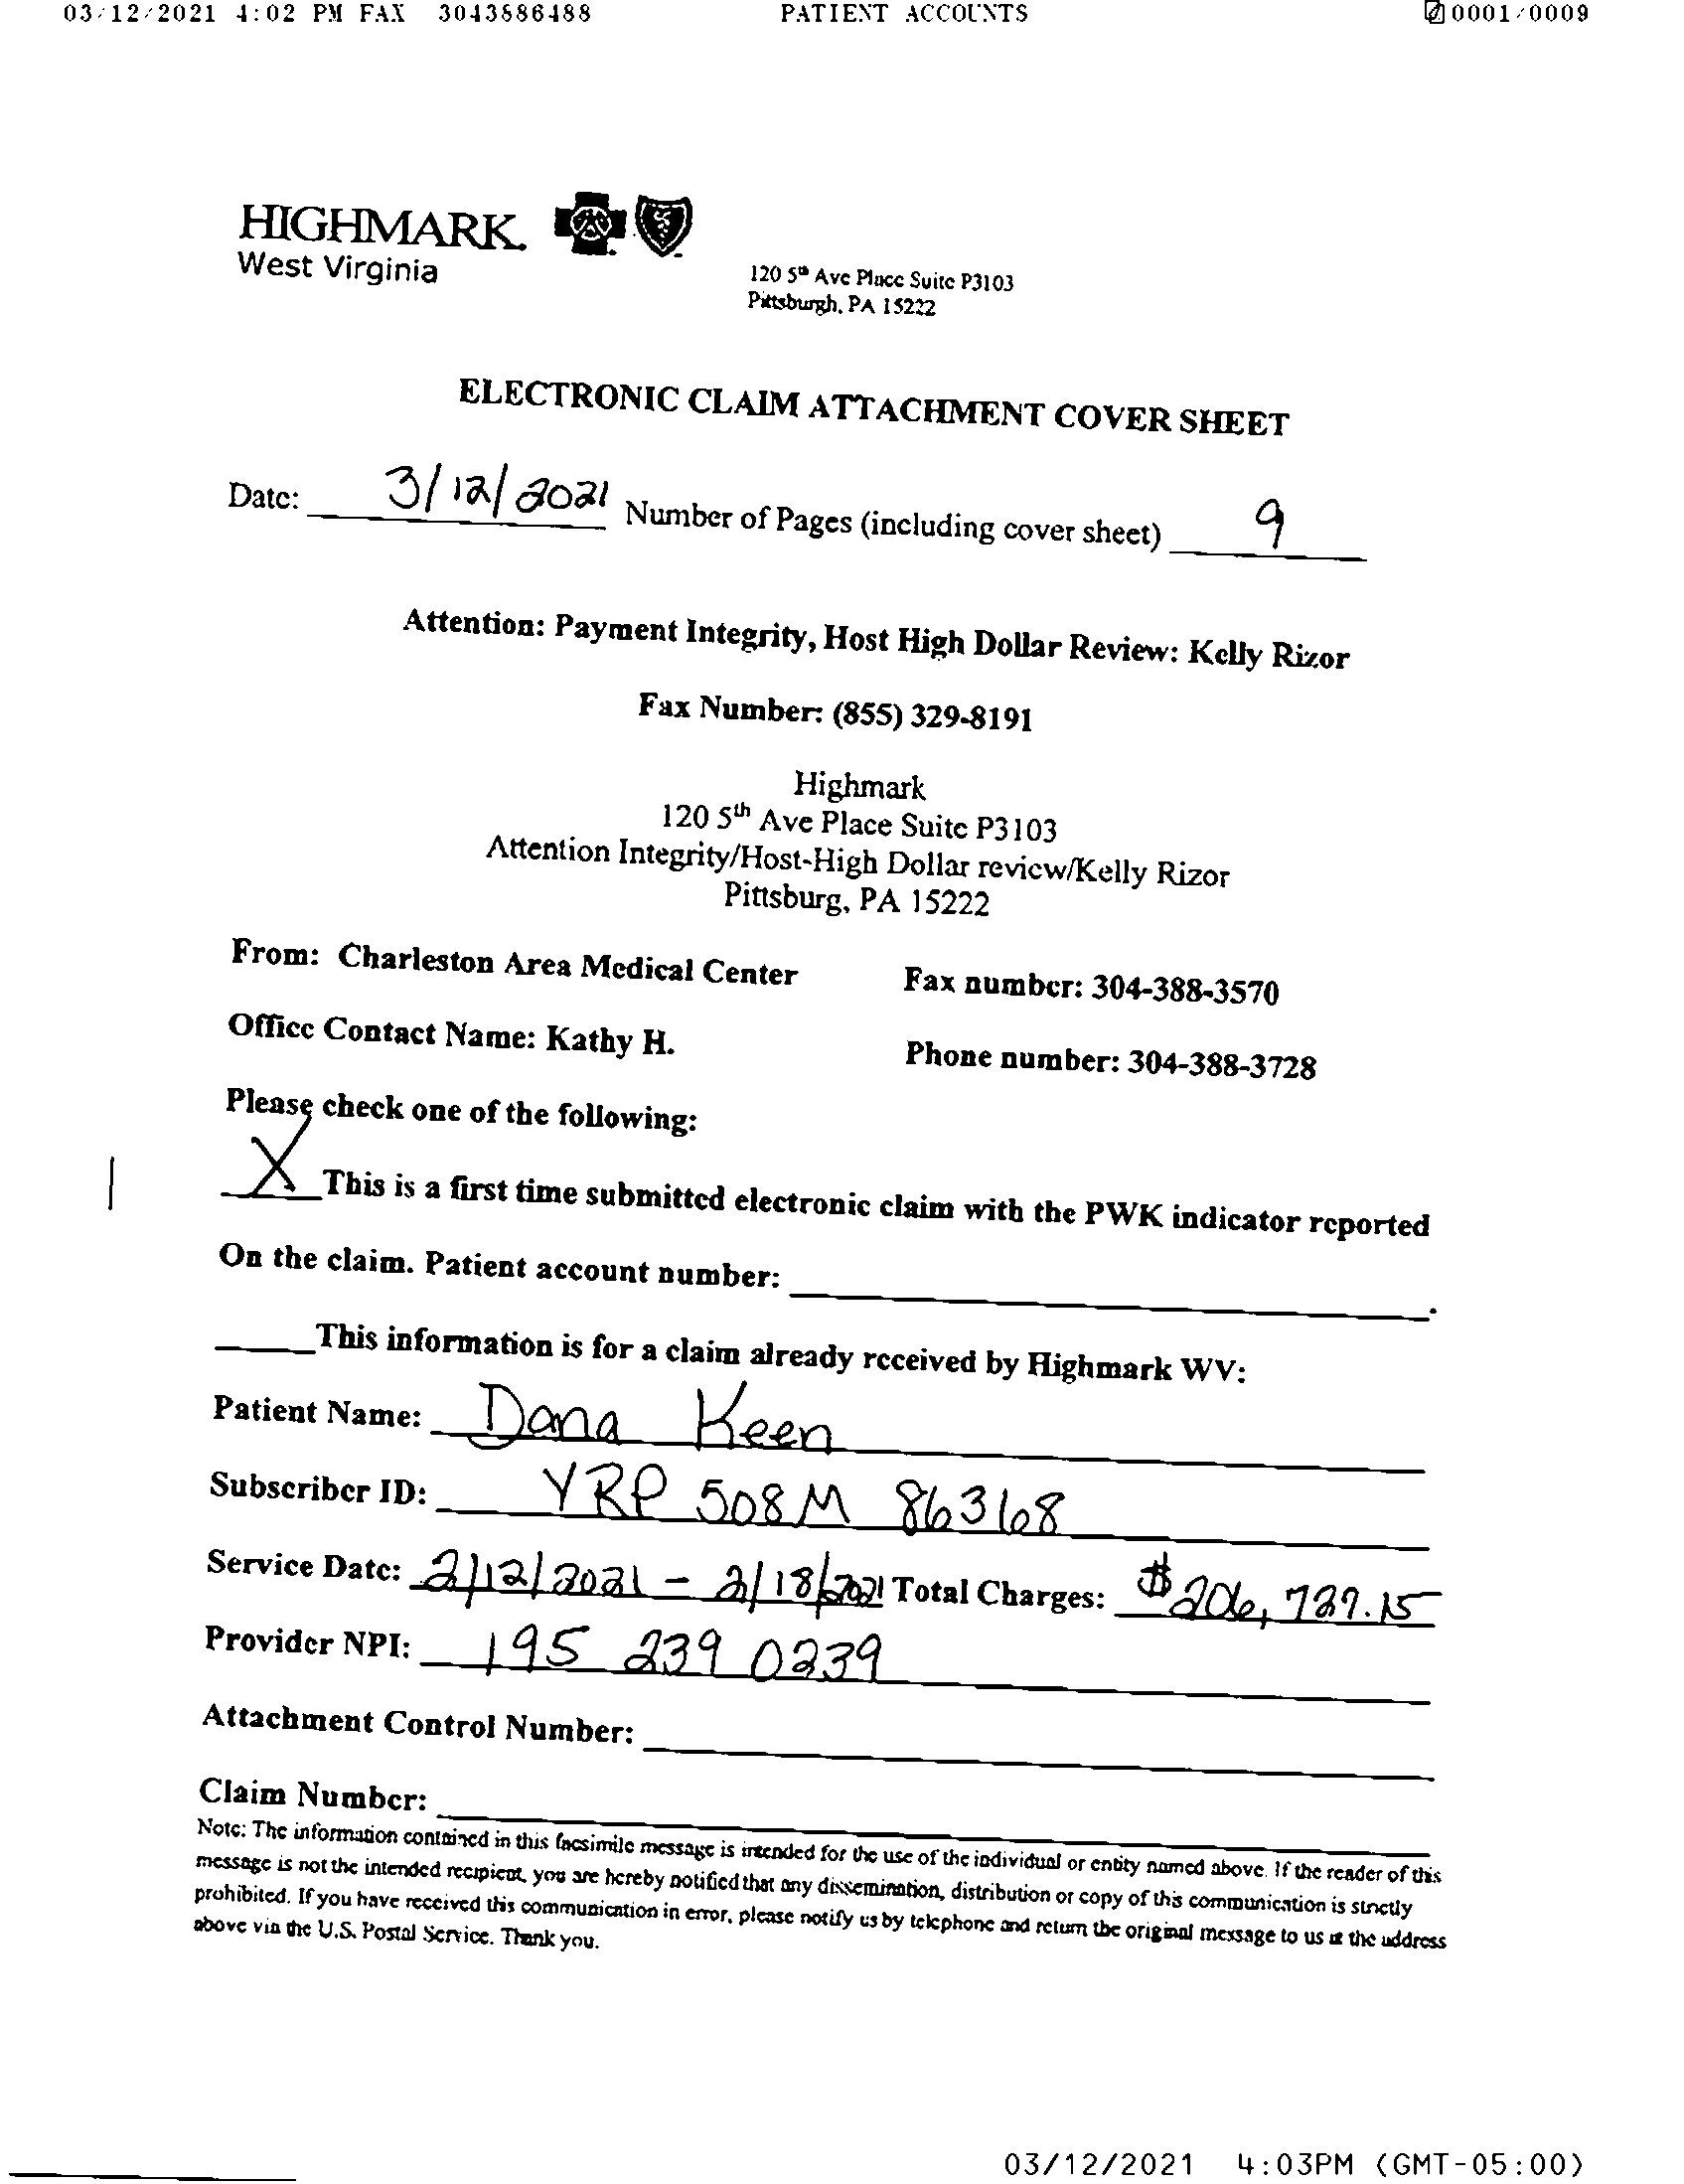 03/12/2021 4:02 PM FAX 3043886488 PATIENT ACCOUNTS 0001/0009
HIGHMARK.
West Virginia
120 5th Ave Place Suite P3103
Pittsburgh, PA 15222
ELECTRONIC CLAIM ATTACHMENT COVER SHEET
Date: 3/12/2021 Number of Pages (including cover sheet) 9
Attention: Payment Integrity, Host High Dollar Review: Kelly Rizor
Fax Number: (855) 329-8191
Highmark
120 5th Ave Place Suite P3103
Attention Integrity/Host-High Dollar review/Kelly Rizor
Pittsburg, PA 15222
From: Charleston Area Medical Center Fax number: 304-388-3570
Office Contact Name: Kathy H. Phone number: 304-388-3728
Please check one of the following:
X This is a first time submitted electronic claim with the PWK indicator reported
On the claim. Patient account number: .
This information is for a claim already received by Highmark WV:
Patient Name: Dana Keen
Subscriber ID: YRP 508M 86368
Service Date: 2/12/2021 - 2/18/2021 Total Charges: $206,727.15
Provider NPI: 195 239 0239
Attachment Control Number:
Claim Number:
Note: The information contained in this facsimile message is intended for the use of the individual or entity named above. If the reader of this
message is not the intended recipient, you are hereby notified that any dissemination, distribution or copy of this communication is strictly
prohibited. If you have received this communication in error, please notify us by telephone and return the original message to us at the address
above via the U.S. Postal Service. Thank you.
03/12/2021 4:03PM (GMT-05:00)